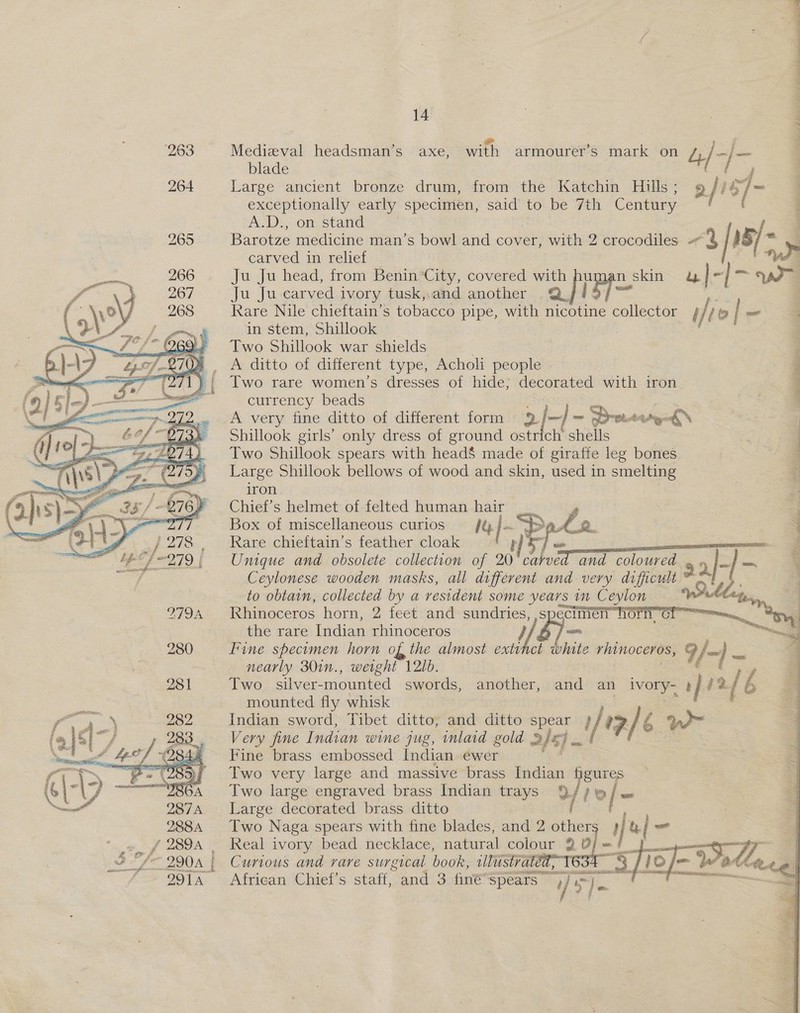 14
263 Mediæval headsman's axe, with armourer's mark on 4/-/-
blade
264 Large ancient bronze drum, from the Katchin Hills; 2/15/-
exceptionally early specimen, said to be 7th Century
A.D., on stand
265 Barotze medicine man's bowl and cover, with 2 crocodiles 3/15/-
carved in relief
266 Ju Ju head, from Benin City, covered with human skin 4/-/-
267 Ju Ju carved ivory tusk, and another 2/15/-
(2/10/ 268 Rare Nile chieftain's tobacco pipe, with nicotine collector 1/10/-
in stem, Shillook
70/- 269 Two Shillook war shields
6/-/- 40/- 270 A ditto of different type, Acholi people
271 Two rare women's dresses of hide, decorated with iron
currency beads
(2/5/-) 272 A very fine ditto of different form 2/-/-
60/- 273 Shillook girls' only dress of ground ostrich shells
(1/10/-) 274 Two Shillook spears with heads made of giraffe leg bones
(1/15/ 275 Large Shillook bellows of wood and skin, used in smelting
iron
(2/15/- 35/- 276 Chief's helmet of felted human hair
277 Box of miscellaneous curios
278 Rare chieftain's feather cloak 1/5/-
279 Unique and obsolete collection of 20 carved and coloured
Ceylonese wooden masks, all different and very difficult
to obtain, collected by a resident some years in Ceylon
279A Rhinoceros horn, 2 feet and sundries, specimen horn of
the rare Indian rhinoceros
280 Fine specimen horn of the almost extinct white rhinoceros, 9/-/-
nearly 30in., weight 12lb.
281 Two silver-mounted swords, another, and an ivory- 1/12/6
mounted fly whisk
282 Indian sword, Tibet ditto, and ditto spear 1/17/6
(2/5/-) 283 Very fine Indian wine jug, inlaid gold 2/5/-
40/- 284 Fine brass embossed Indian ewer
285 Two very large and massive brass Indian figures
(6/-/- 286A Two large engraved brass Indian trays 2/10/-
287A Large decorated brass ditto
288A Two Naga spears with fine blades, and 2 others 1/4/-
289A Real ivory bead necklace, natural colour
290A Curious and rare surgical book, illustrated, 1634 3/10/-
291A African Chief's staff, and 3 fine spears 1/5/-